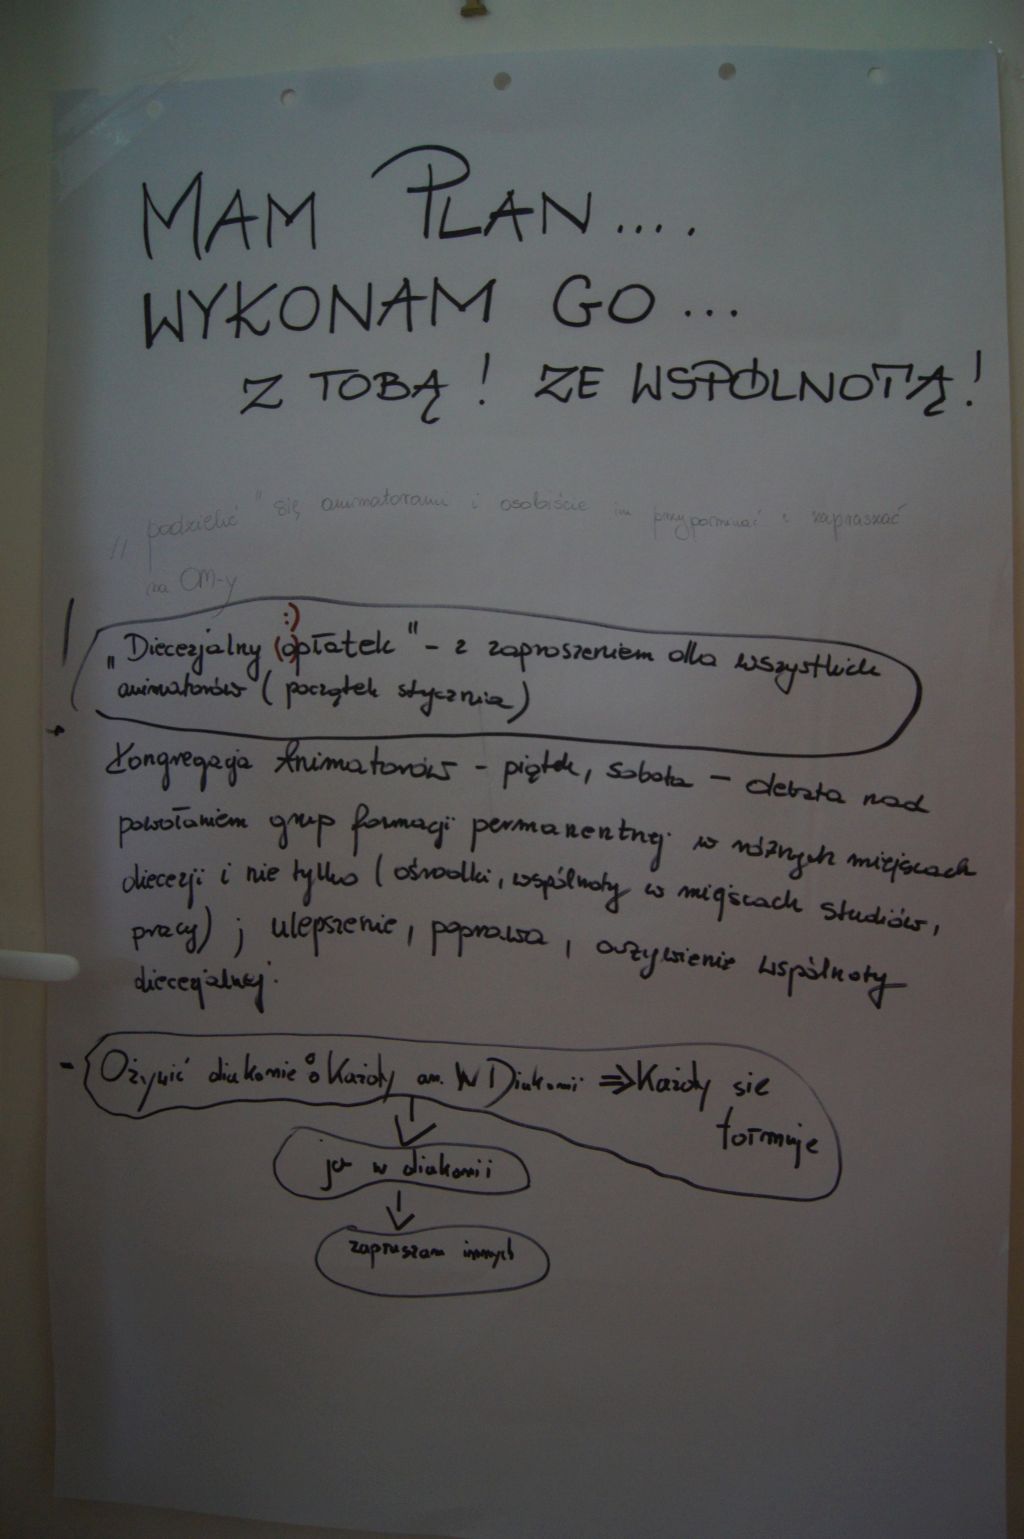 MAM PLAN....
WYKONAM GO...
Z TOBĄ! ZE WSPÓLNOTĄ!
// podzielić" się animatorami i osobiście im przypominać i zapraszać
na OM-y
:)
„Diecezjalny (o)płatek" - z zaproszeniem dla wszystkich
animatorów (początek stycznia)
Kongregacja Animatorów - piątek, sobota - debata nad
powołaniem grup formacji permanentnej w różnych miejscach
diecezji i nie tylko (ośrodki, wspólnoty w miejscach studiów,
pracy) ; ulepszenie, poprawa, ożywienie wspólnoty
diecezjalnej.
- Ożywić diakonie: Każdy an. W Diakonii ⇒ Każdy się
formuje
ja w diakonii
zapraszam innych